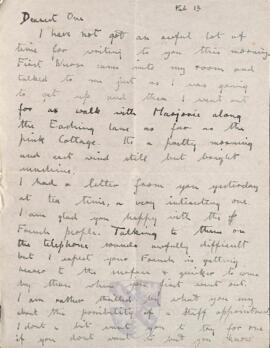 Feb 13
Dearest One
I have not got an awful lot of
time for writing to you this morning
First came into my room and
talked to me just as I was going
to get up and then I went out
for a walk with Marjorie along
the Eashing lane as far as the
pink Cottage. Its a pretty morning
and east wind still but bright
sunshine.
I had a letter from you yesterday
at tea time, a very interesting one.
I am glad you happy with the
French people. Talking to them on
the telephone sounds awfully difficult
but I expect your French is getting
nearer to the surface & quicker to come
by than when you first went out.
I am rather thrilled by what you say
about the possibility of a staff appointment
I don't want you to try for one
if you don't want to but you know